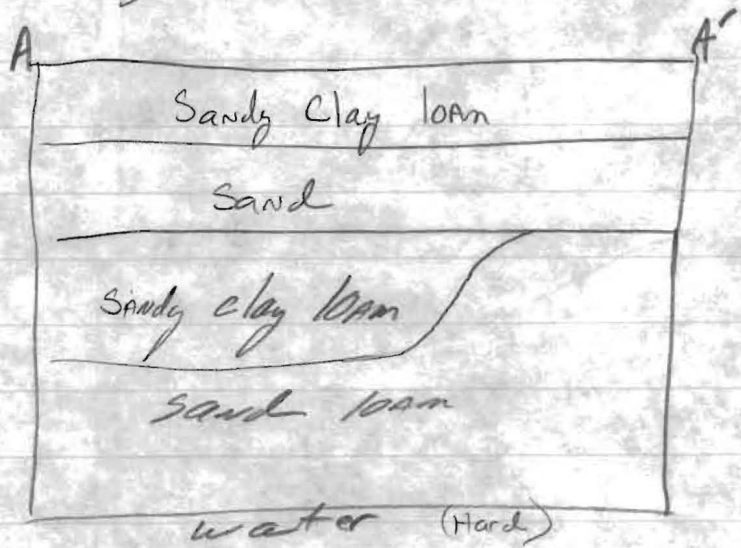 A A'
Sandy Clay loam
Sand
Sandy clay loam
sand loam
water (Hard)